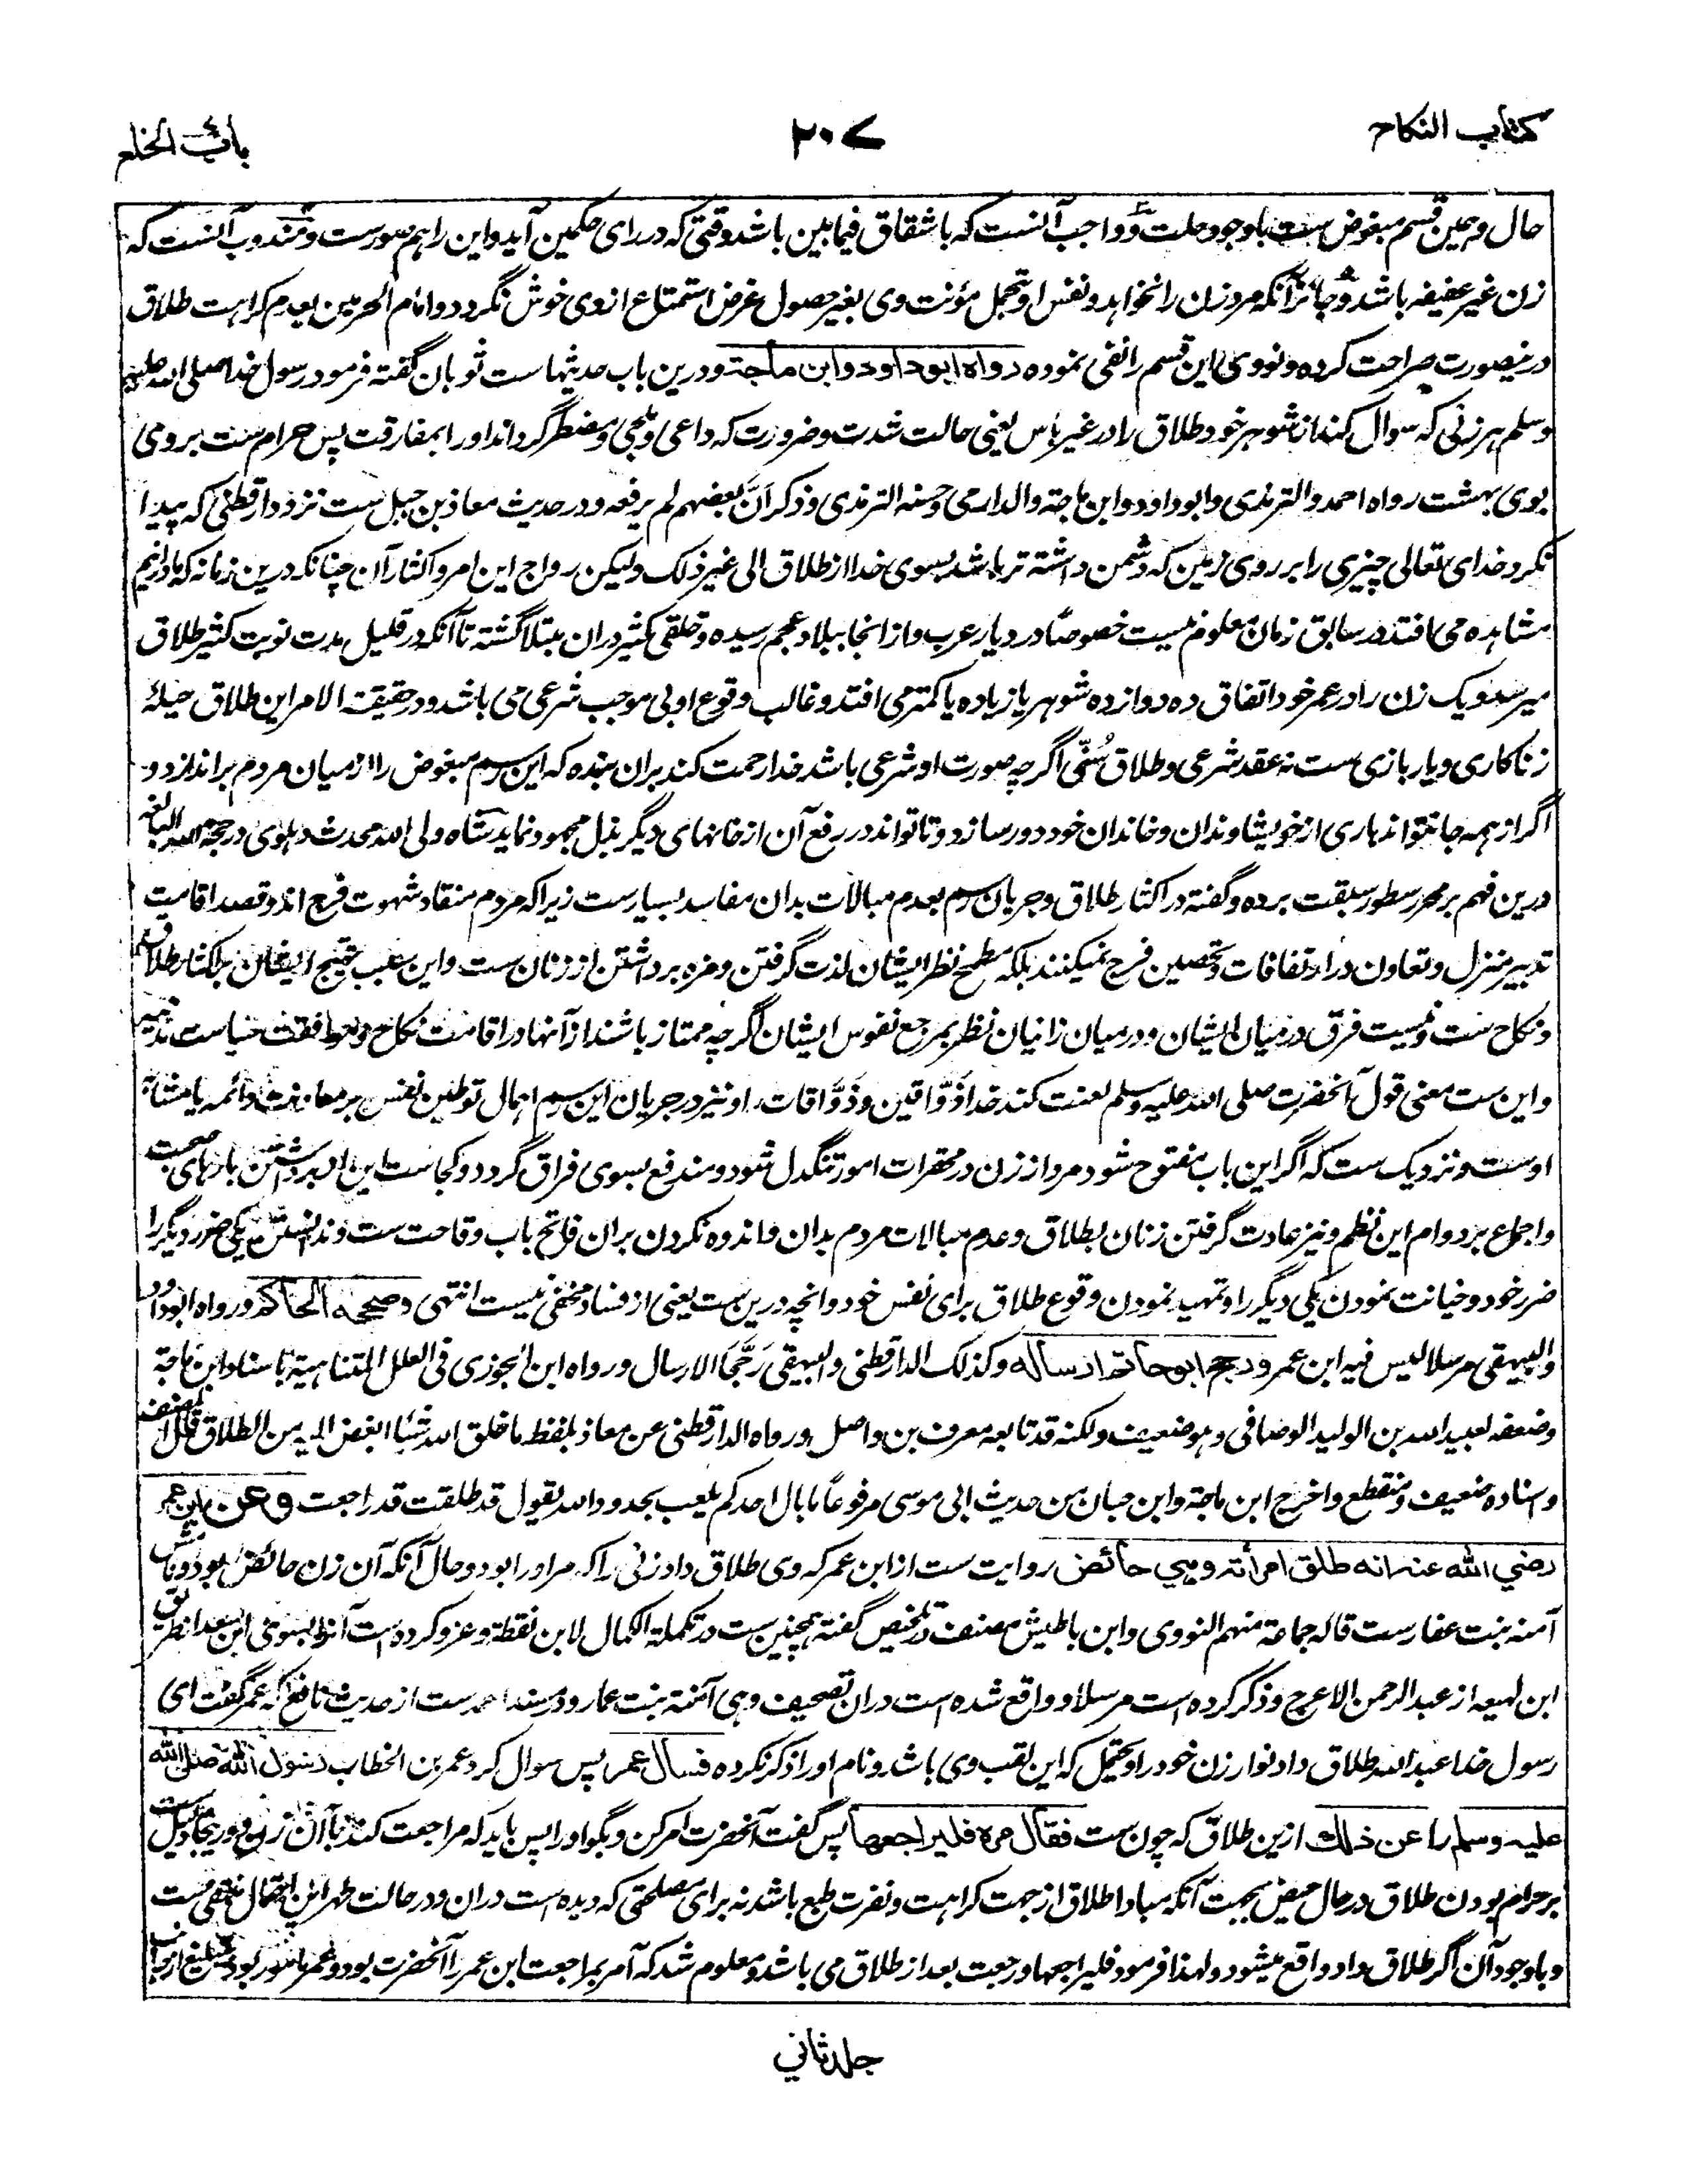 كتاب النكاح
۲۰۷
باب الخلع
حال وہمین قسم مبغوض ست باوجود حلت و واجب آنست که با شقاق فیما بین باشد وقتی که در رای حکمین آید و این را ہم صورت ست و مندوب آنست که
زن غیر عفیفہ باشد و جائز آنکه مرد زن را نخواہد و نفس او تحمل مؤنت وی بغیر حصول غرض استمتاع از وی خوش نگردد و امام الحرمین بعدم کراہت طلاق
درینصورت صراحت کرده و نووی این قسم را نفی نموده رواه ابو داود وابن ماجة و درین باب حدیثہا ست ثوبان گفته فرمود رسول خدا صلی الله علیه
وسلم ہر زنی که سوال کند از شوہر خود طلاق را در غیر باس یعنی حالت شدت و ضرورت که داعی و ملجی و مضطر گرداند او را بمفارقت پس حرام ست بر وی
بوی بہشت رواه احمد والترمذی وابو داود وابن ماجة والدارمی وحسنه الترمذی وذکر انّ بعضہم لم یرفعه و در حدیث معاذ بن جبل ست نزد دارقطنی که پیدا
نکرد خدای تعالی چیزی را بر روی زمین که دشمن داشته تر باشد بسوی خدا از طلاق الی غیر ذلک ولیکن رواج این امر و اکثار آن چنانکه درین زمانه که مادرانیم
مشاہده می افتد در سابق زمان معلوم نیست خصوصًا در دیار عرب و از انجا ببلاد عجم رسیده و خلقی کثیر دران مبتلا گشته تا آنکه در قلیل مدت نوبت کثیر طلاق
میرسد و یک زن را در عمر خود اتفاق ده دوازده شوہر یا زیاده یا کمتر می افتد و غالب وقوع او بی موجب شرعی می باشد و در حقیقة الامر این طلاق حیلهٔ
زناکاری و یاربازی ست نه عقد شرعی و طلاق سُنّی اگرچه صورت او شرعی باشد خدا رحمت کند بران بنده که این رسم مبغوض را از میان مردم براندازد و
اگر از ہمه جا نتواند باری از خویشاوندان و خاندان خود دور سازد و تا تواند در رفع آن از خانہای دیگر بذل مجہود نماید شاه ولی الله محدث دہلوی در حجة الله البالغه
درین فہم بر محرر سطور سبقت برده و گفته در اکثار طلاق و جریان رسم بعدم مبالات بدان مفاسد بسیارست زیرا که مردم منقاد شہوت فرج اند و قصد اقامت
تدبیر منزل و تعاون در ارتفاقات و تحصین فرج نمیکنند بلکه مطمح نظر ایشان لذت گرفتن و مزه برداشتن از زنان ست و این سبب اکثار طلاق
و نکاح ست و نیست فرق درمیان ایشان و درمیان زانیان نظر بمرجع نفوس ایشان اگرچه ممتاز باشند از آنہا در اقامت نکاح و موافقت سیاست
و این ست معنی قول آنحضرت صلی الله علیه وسلم لعنت کند خدا ذوّاقین و ذوّاقات را و نیز در جریان این رسم اہمال توطین نفس بر معاونت دائمه یا مشابه
اوست و نزدیک ست که اگر این باب مفتوح شود مرد از زن در محقرات امور تنگدل شود و مندفع بسوی فراق گردد و کجاست این از برداشتن بارہای صحبت
و اجماع بر دوام این نظم و نیز عادت گرفتن زنان بطلاق و عدم مبالات مردم بدان و اندوه نکردن بران فاتح باب وقاحت ست و ندانستن یکی ضرر دیگر را
ضرر خود و خیانت نمودن یکی دیگر را و تمہید نمودن وقوع طلاق برای نفس خود و انچه درین ست یعنی از فساد مخفی نیست انتہی وصححه الحاكم و رواه ابو داود
والبیہقی مرسلا لیس فیه ابن عمر ورجح ابو حاتم ارساله وکذلک الدارقطنی والبیہقی رَجّحا الارسال و رواه ابن الجوزی فی العلل المتناہیة باسناد ابن ماجة
وضعفه لعبید الله بن الولید الوصافی وہو ضعیف ولکنه قد تابعه معرف بن واصل ورواه الدارقطنی عن معاذ بلفظ ما خلق الله شیئا ابغض الیه من الطلاق قال المصنف
واسناده ضعیف ومنقطع واخرج ابن ماجة وابن حبان من حدیث ابی موسی مرفوعًا ما بال احدکم یلعب بحدود الله یقول قد طلقت قد راجعت وعن ابن عمر
رضي الله عنه انه طلق امرأته وهي حائض روایت ست از ابن عمر که وی طلاق داد زنی را که مر او را بود و حال آنکه آن زن حائض بود و نامش
آمنه بنت غفار ست قاله جماعة منہم النووی وابن باطیش مصنف در تلخیص گفته ہمچنین ست در تکملة الاکمال لابن نقطة و عزو کرده است آنرا بسوی ابن سعد از طریق
ابن لہیعه از عبد الرحمن الاعرج و ذکر کرده است مرسلا و واقع شده است دران تصحیف وہی آمنة بنت عمار و در مسند احمد ست از حدیث نافع که عمر گفت ای
رسول خدا عبد الله طلاق داد نوار زن خود را و یحتمل که این لقب وی باشد و نام او را ذکر نکرده فسأل عمر پس سوال کرد عمر بن الخطاب رسول الله صلی الله
علیه وسلم را عن ذلك ازین طلاق که چون ست فقال مره فليراجعها پس گفت آنحضرت امر کن و بگو او را پس باید که مراجعت کند بآن زن و درینجا دلیل ست
بر حرام بودن طلاق در حال حیض بجہت آنکه مبادا طلاق از جہت کراہت و نفرت طبع باشد نه برای مصلحتی که دیده است دران و در حالت طہر این احتمال منتفی ست
و باوجود آن اگر طلاق داد واقع میشود و لہذا فرمود فلیراجعہا و رجعت بعد از طلاق می باشد و معلوم شد که آمر بمراجعت ابن عمر را آنحضرت بود و عمر مامور بود بتبلیغ
جلد ثاني